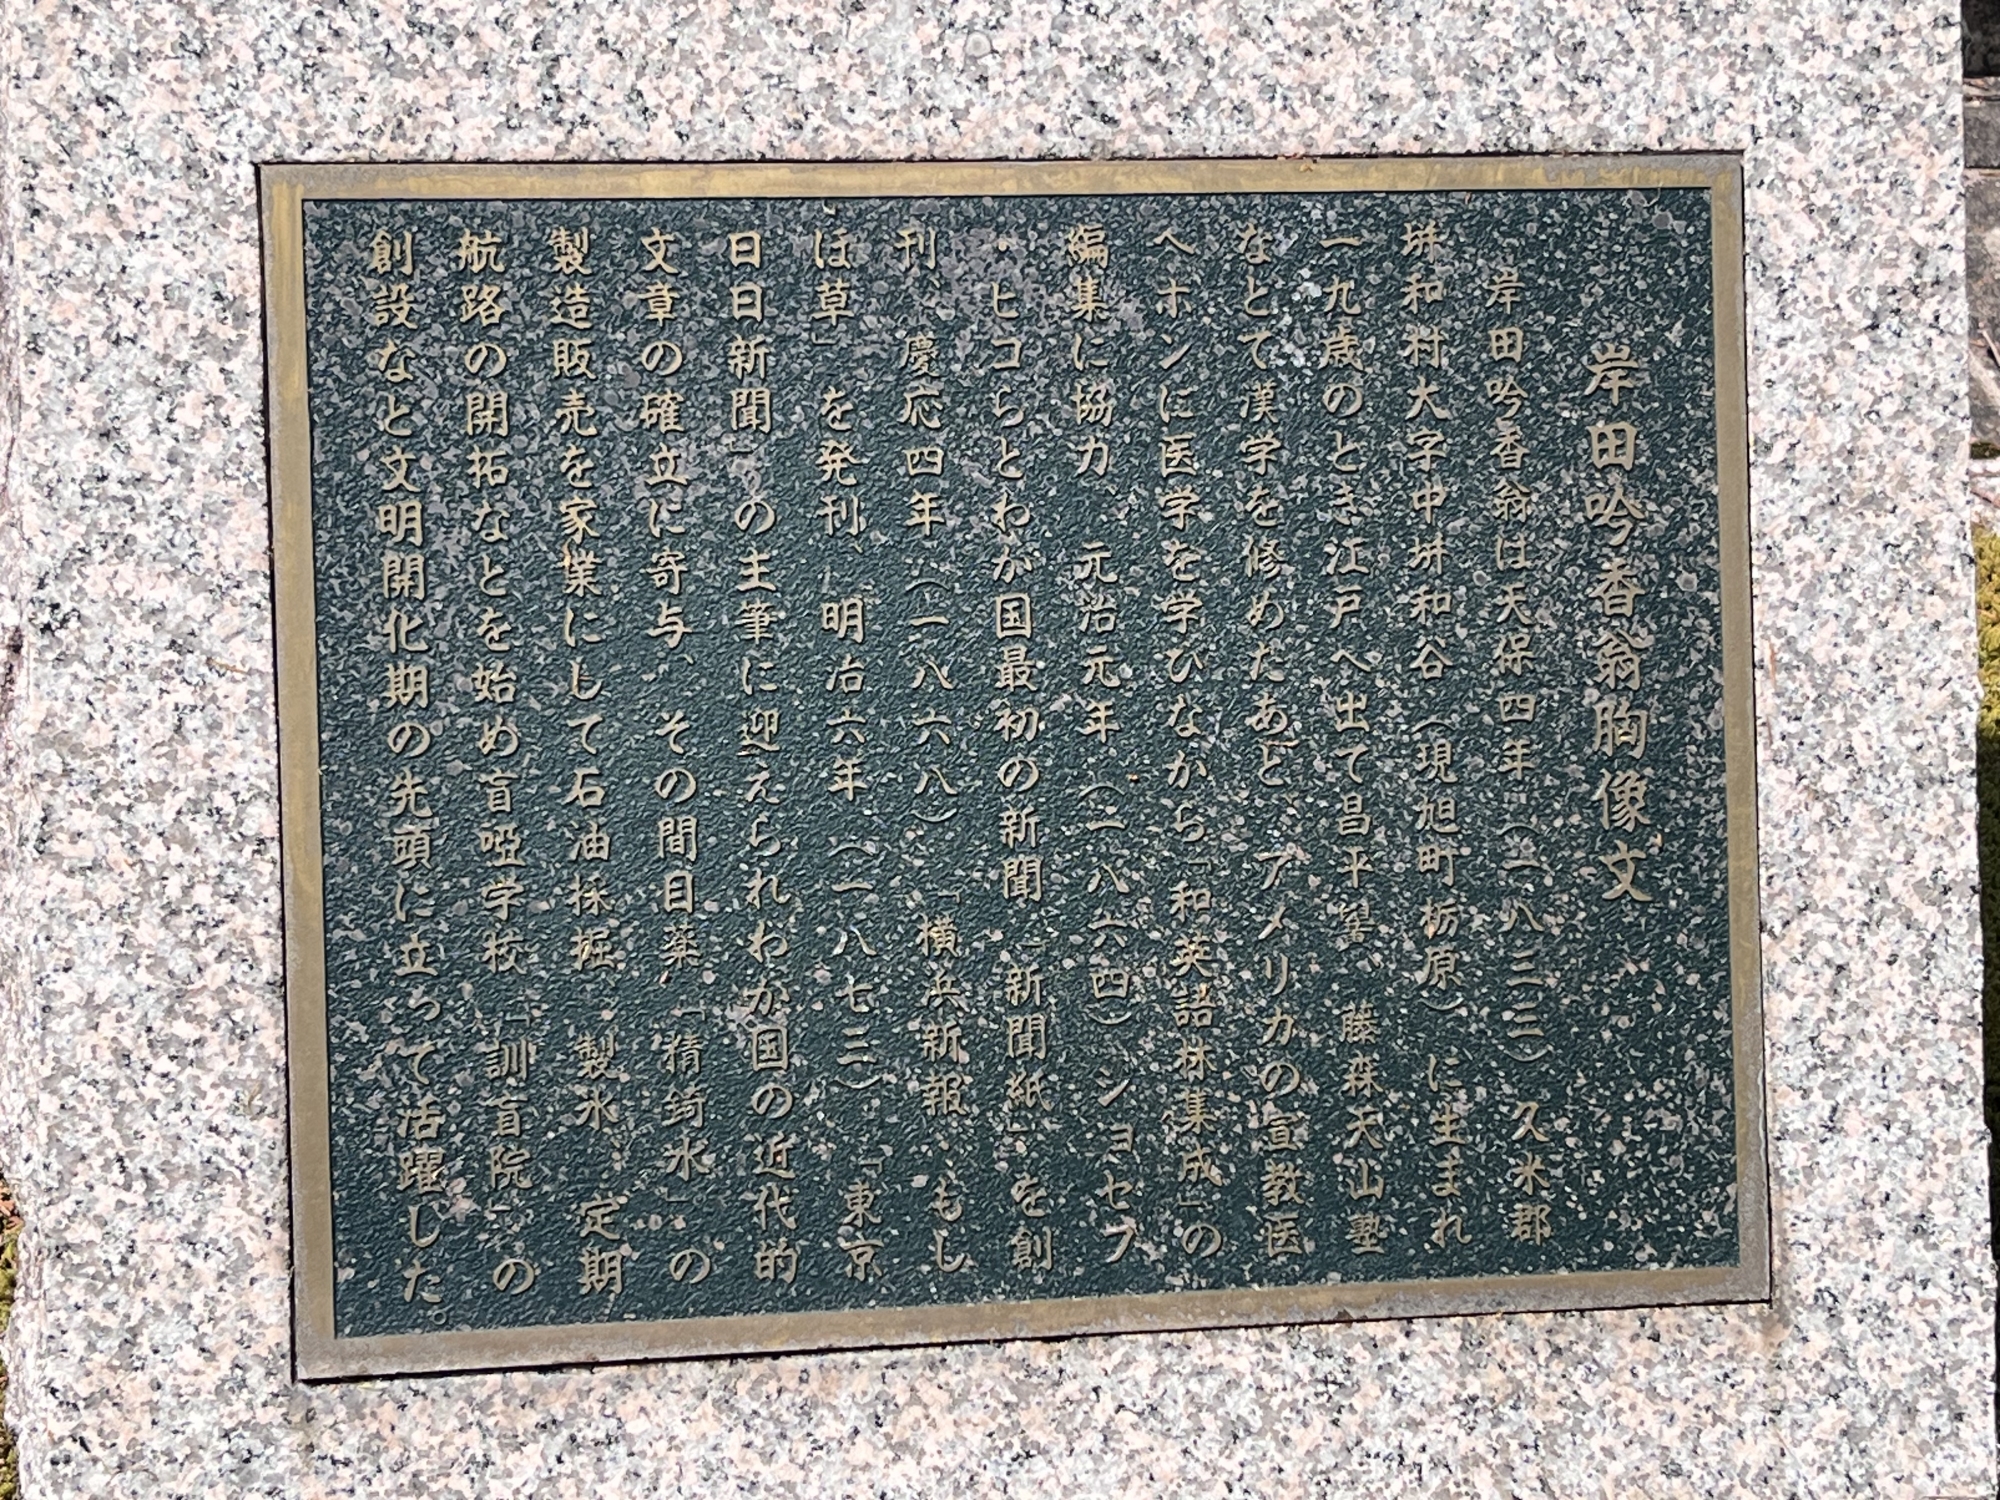 岸田吟香翁胸像文
岸田吟香翁は天保四年（一八三三）久米郡
垪和村大字中垪和谷（現旭町栃原）に生まれ
一九歳のとき江戸へ出て昌平黌、藤森天山塾
などで漢学を修めたあと、アメリカの宣教医
ヘボンに医学を学びながら「和英語林集成」の
編集に協力、元治元年（一八六四）ジョセフ
・ヒコらとわが国最初の新聞「新聞紙」を創
刊、慶応四年（一八六八）「横浜新報・もし
ほ草」を発刊、明治六年（一八七三）「東京
日日新聞」の主筆に迎えられわが国の近代的
文章の確立に寄与、その間目薬「精錡水」の
製造販売を家業にして石油採掘、製氷、定期
航路の開拓などを始め盲啞学校「訓盲院」の
創設など文明開化期の先頭に立って活躍した。